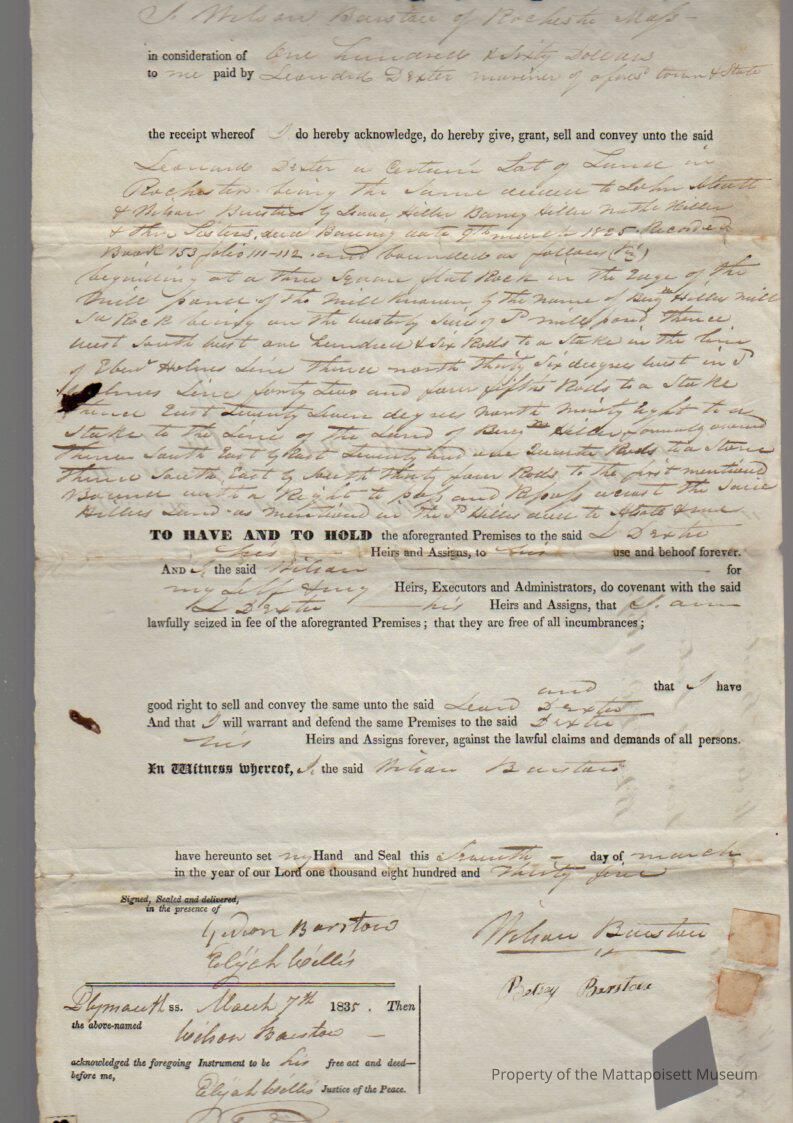 I Wilson Barstow of Rochester Mass
in consideration of One hundred & Sixty Dollars
to me paid by Leonard Dexter mariner of afores^d town & State
the receipt whereof I do hereby acknowledge, do hereby give, grant, sell and convey unto the said
Leonard Dexter a Certain Lot of Land in
Rochester being the same deeded to John
& Wilson Barstow by Isaac Hiller Barney Hiller Hiller
& their Sisters, deed Bearing date 9th march 1825 Recorded
Book 153 folio 111-112 and bounded as follows (viz)
beginning at a three Square flat Rock in the Edge of the
mill pond of the mill known by the name of Benj^n Hiller mill
Rock being on the westerly side of s^d mill pond thence
west South west one hundred & Six Rods to a Stake in the line
of Eben^r Holmes Line thence north thirty Six degrees west in s^d
Holmes Line forty two and four fifths Rods to a Stake
thence East Seventy Seven degrees North Ninety Eight to a
Stake to the Line of the Land of Benj^n Hiller formerly owned
thence South East by East Seventy and one Quarter Rods to a Stone
thence South East by South thirty four Rods to the first mentioned
Bound with a Right to pass and Repass across the said
Hillers Land as mentioned in the s^d Hillers deed to
TO HAVE AND TO HOLD the aforegranted Premises to the said L Dexter
his Heirs and Assigns, to his use and behoof forever.
AND I, the said Wilson for
my self & my Heirs, Executors and Administrators, do covenant with the said
L Dexter his Heirs and Assigns, that I am
lawfully seized in fee of the aforegranted Premises; that they are free of all incumbrances;
and that I have
good right to sell and convey the same unto the said Leond Dexter
And that I will warrant and defend the same Premises to the said Dexter
his Heirs and Assigns forever, against the lawful claims and demands of all persons.
In Witness whereof, I, the said Wilson Barstow
have hereunto set my Hand and Seal this Seventh day of march
in the year of our Lord one thousand eight hundred and thirty five
Signed, Sealed and delivered,
in the presence of
Gideon Barstow
Elijah Willis
Wilson Barstow
Betsey Barstow
Plymouth ss. March 7th 1835. Then
the above-named
Wilson Barstow
acknowledged the foregoing Instrument to be his free act and deed—
before me,
Elijah Willis Justice of the Peace.
Property of the Mattapoisett Museum